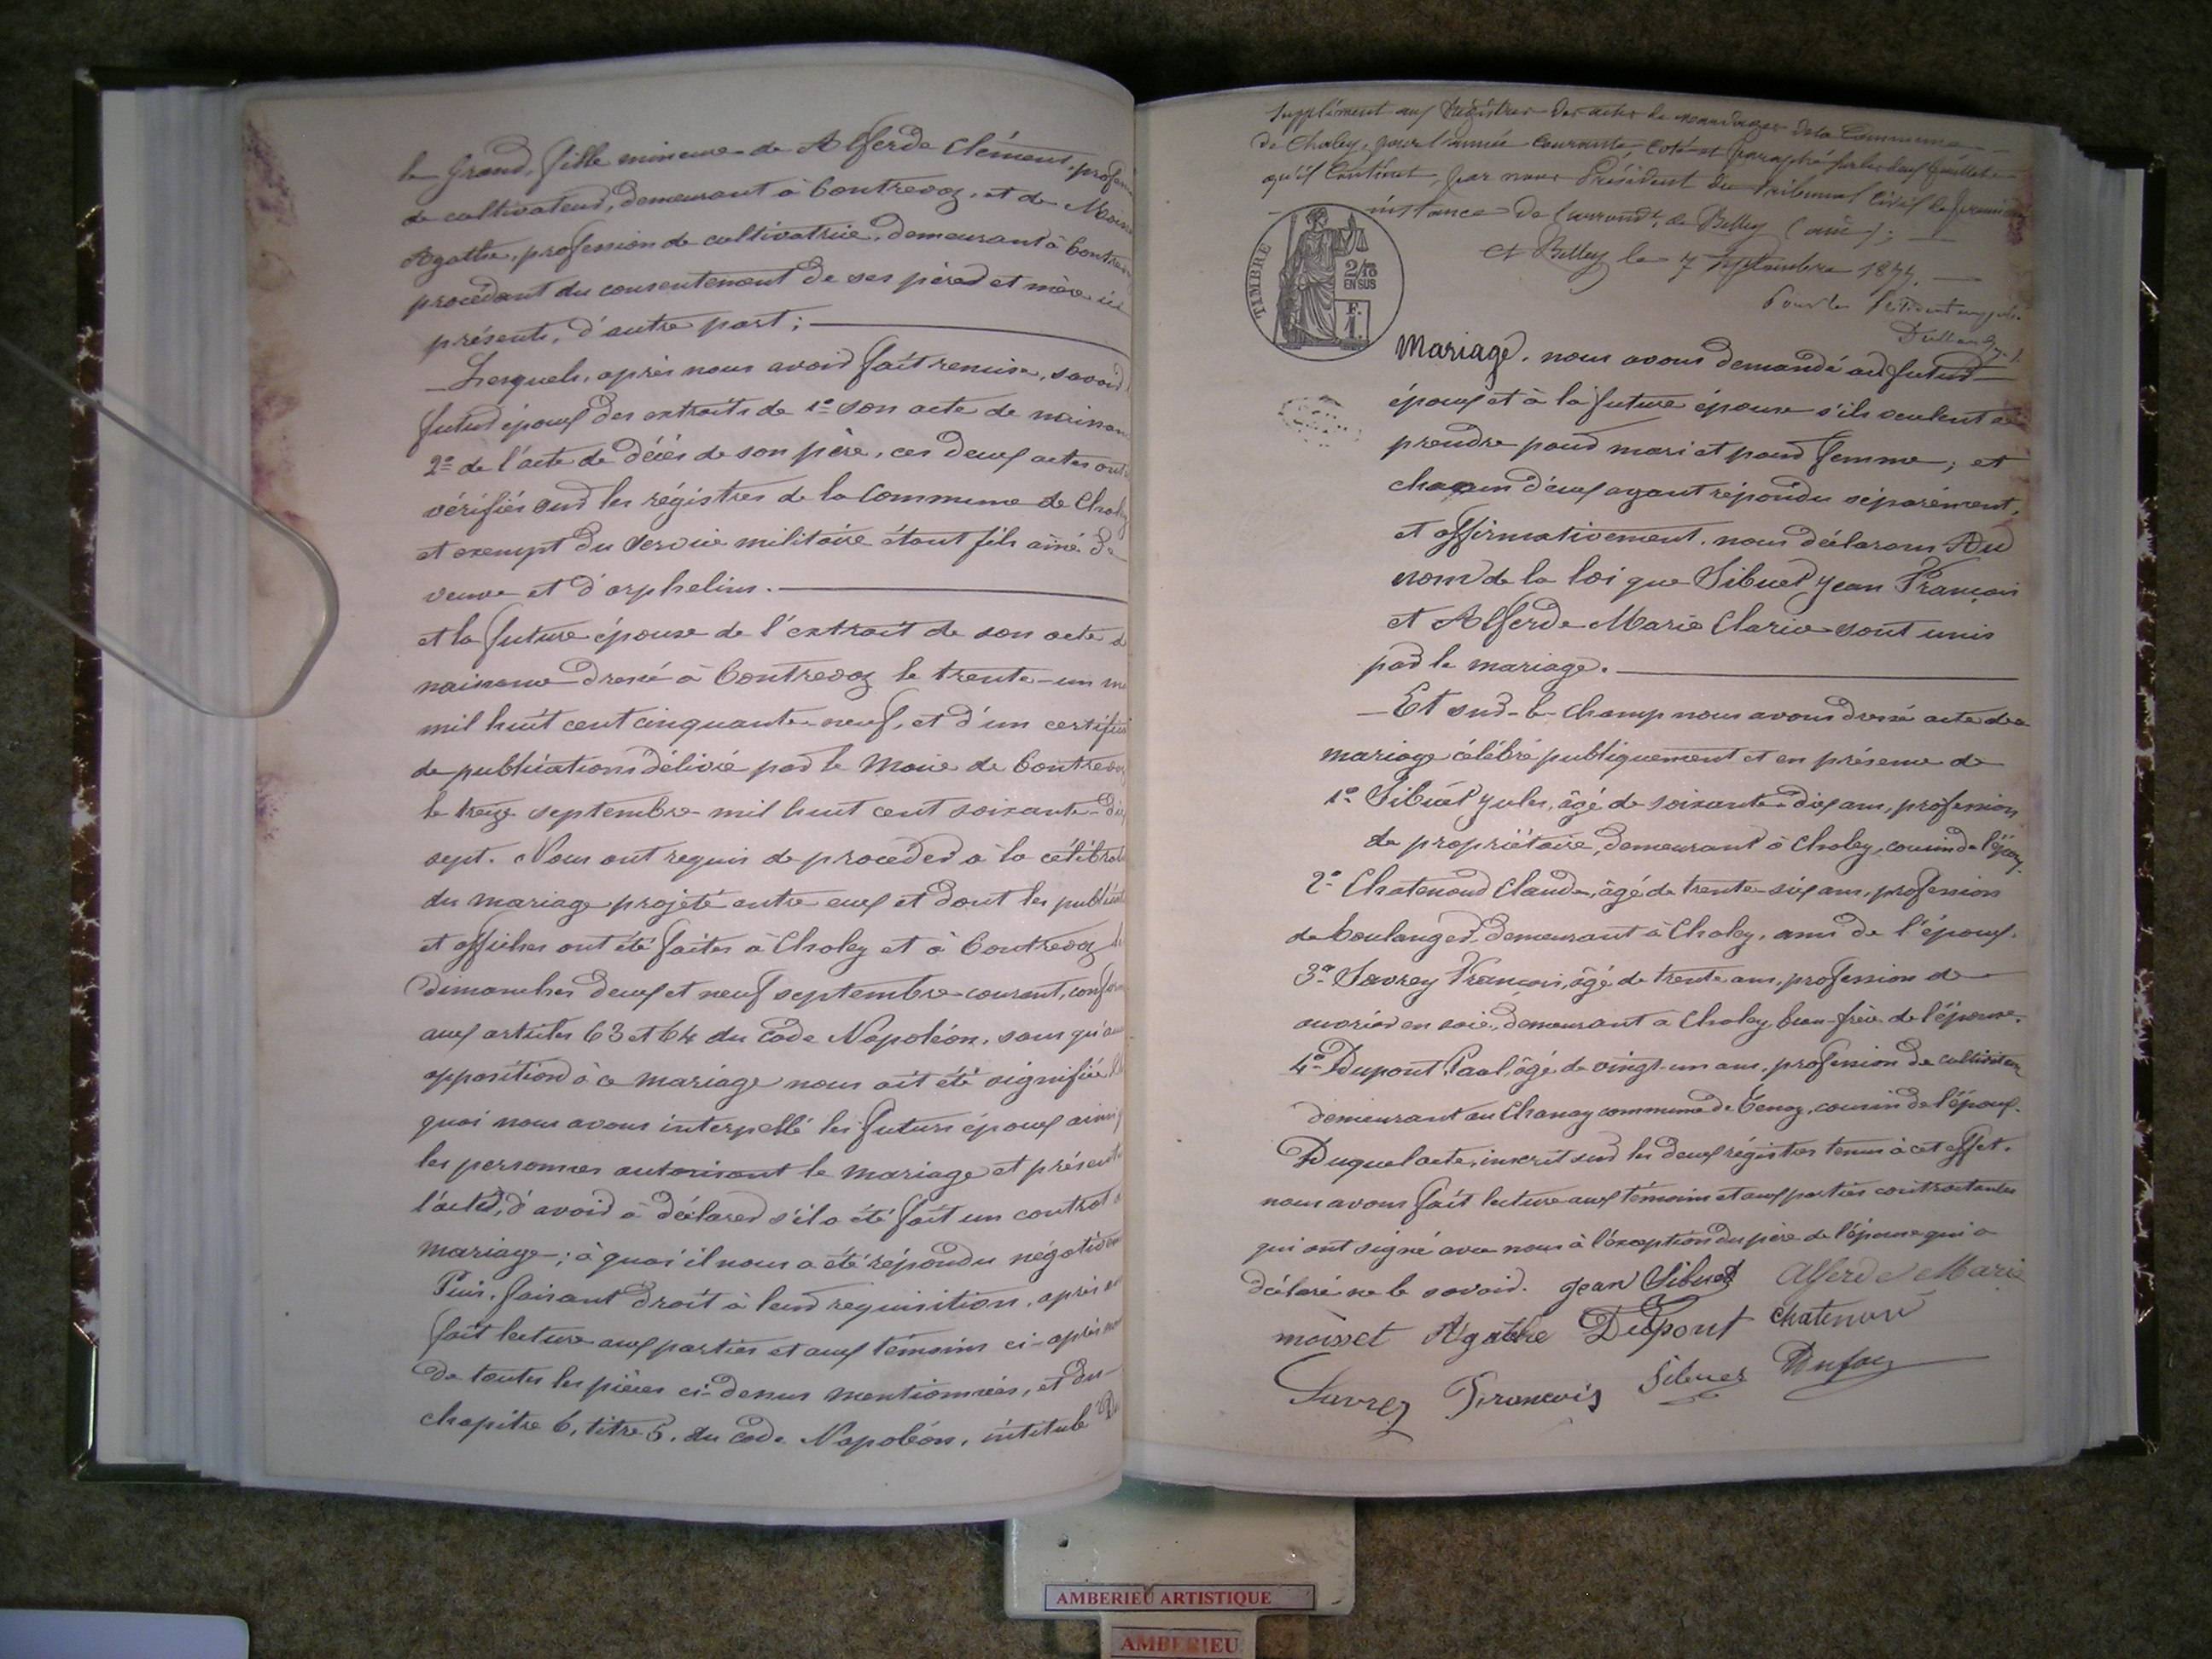 le Grand, fille mineure de Alferde Clément, profess
de cultivateur, demeurant à Contrevoz, et de Moiss
Agathe, profession de cultivatrice, demeurant à Contrev
procédant du consentement de ses pères et mère ici
présents, d'autre part;
Lesquels, après nous avoir fait remise, savoir
futur époux des extraits de 1º son acte de naissan
2º de l'acte de décès de son père, ces deux actes ont
vérifiés sur les régistres de la Commune de Chaley
et exempt du service militaire étant fils ainé de
veuve et d'orphelins.
et la future épouse de l'extrait de son acte d
naissance dressé à Contrevoz le trente-un m
mil huit cent cinquante-neuf, et d'un certific
de publications délivré par le Maire de Contrevoz
le treize septembre mil huit cent soixante-dix
sept. Nous ont requis de procéder à la célébrat
du mariage projeté entre eux et dont les publicat
et affiches ont été faites à Chaley et à Contrevoz
dimanches deux et neuf septembre courant, conform
aux articles 63 et 64 du Code Napoléon, sans qu'au
opposition à ce mariage nous ait été signifiée
quoi nous avons interpellé les futurs époux ainsi q
les personnes autorisant le mariage et présents
l'acte, d'avoir à déclarer s'il a été fait un contrat d
mariage; à quoi il nous a été répondu négativem
Puis, faisant droit à leur requisition, après
fait lecture aux parties et aux témoins ci-après
de toutes les pièces ci-dessus mentionnées, et du
chapitre 6, titre 5, du Code Napoléon, intitulé Du
Supplément aux Régistres des actes de mariages de la Commune
de Chaley, pour l'année courante, coté et paraphé sur les deux feuillets
qu'il contient, par nous Président du Tribunal Civil de première
instance de l'arrondt. de Belley (ain);
A Belley le 7 Septembre 1877
Pour le Président empêché
TIMBRE
2/10
EN SUS
F.
1.
Mariage, nous avons demandé au futur
époux et à la future épouse s'ils veulent se
prendre pour mari et pour femme; et
chacun d'eux ayant répondu séparément,
et affirmativement, nous déclarons Au
nom de la loi que Sibuet Jean François
et Alferde Marie Clarie sont unis
par le mariage.
Et sur-le-champ nous avons dressé acte de ce
mariage célébré publiquement et en présence de
1º Sibuet Jules, âgé de soixante-dix ans, profession
de propriétaire, demeurant à Chaley, cousin de l'époux.
2º Chatenoud Claude, âgé de trente-six ans, profession
de boulanger, demeurant à Chaley, ami de l'époux.
3º Savrey François, âgé de trente ans, profession de
ouvrier en soie, demeurant à Chaley, beau-frère de l'épouse.
4º Dupont Paul, âgé de vingt-un ans, profession de cultivateur
demeurant au Chanay commune de Tenay, cousin de l'époux.
Duquel acte, inscrit sur les deux régistres tenus à cet effet,
nous avons fait lecture aux témoins et aux parties contractantes
qui ont signé avec nous à l'exception du père de l'épouse qui a
déclaré ne le savoir. Jean Sibuet Alferde Marie
moisset Agathe Dupont Chatenoud
Savrey François Sibuet Dufour
AMBERIEU ARTISTIQUE
AMBERIEU